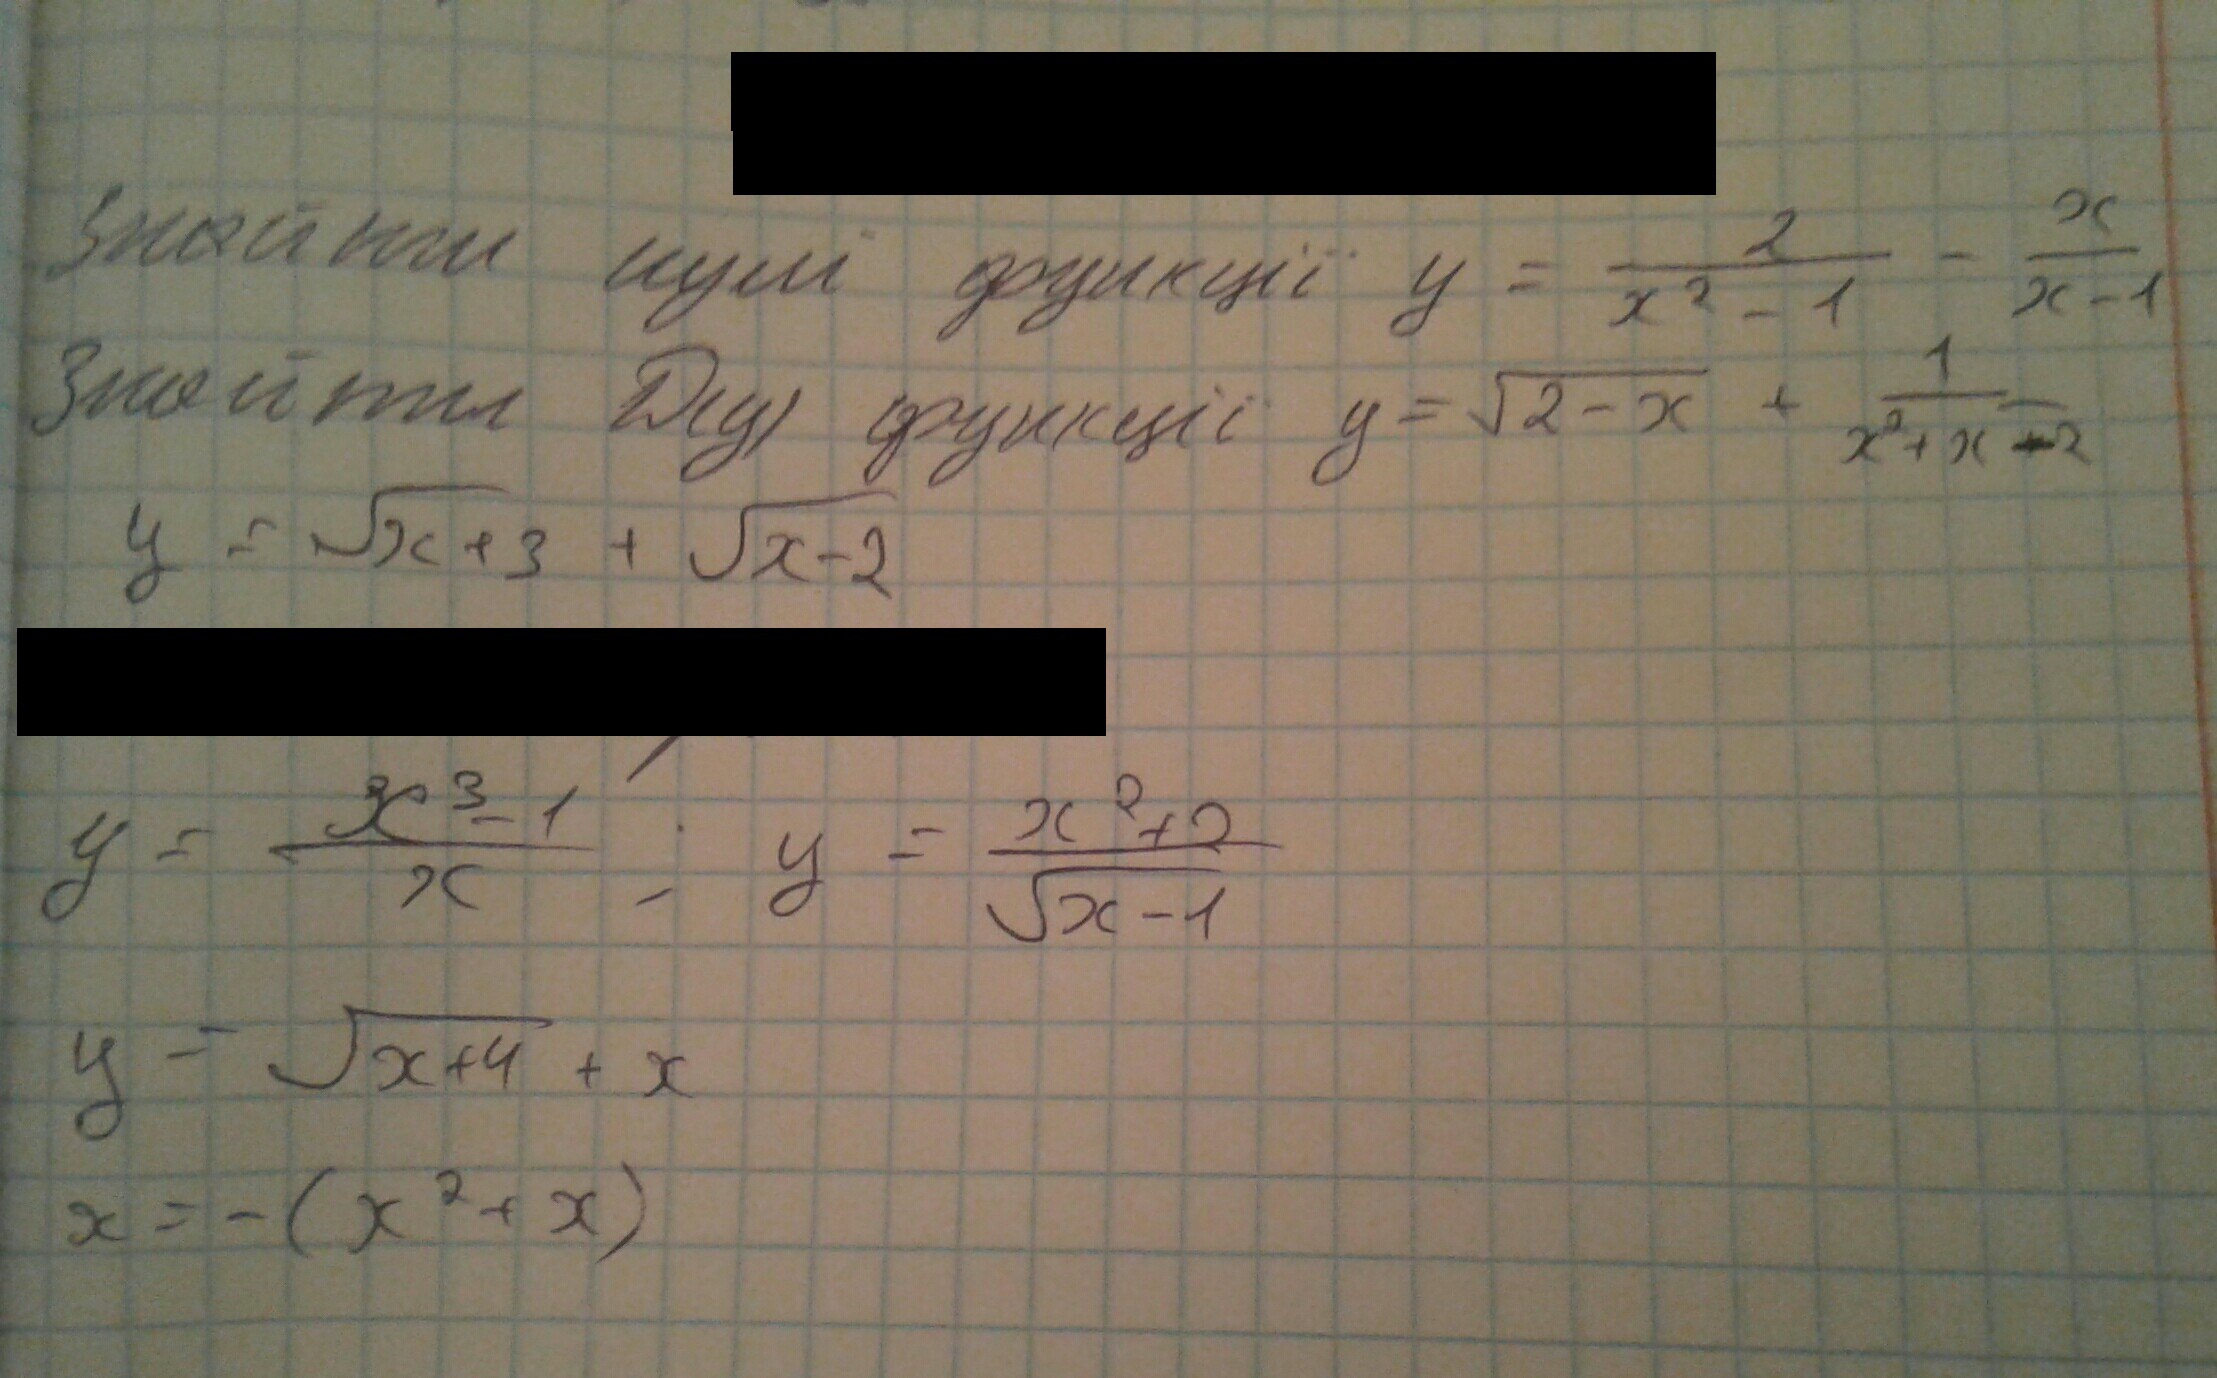 Знайти нулі функції y = 2/(x² - 1) - x/(x - 1)
Знайти D(y) функції y = √(2 - x) + 1/(x² + x - 2)
y = √(x+3) + √(x-2)
y = (x³ - 1)/x , y = (x² + 2)/√(x - 1)
y = √(x+4) + x
x = -(x² + x)